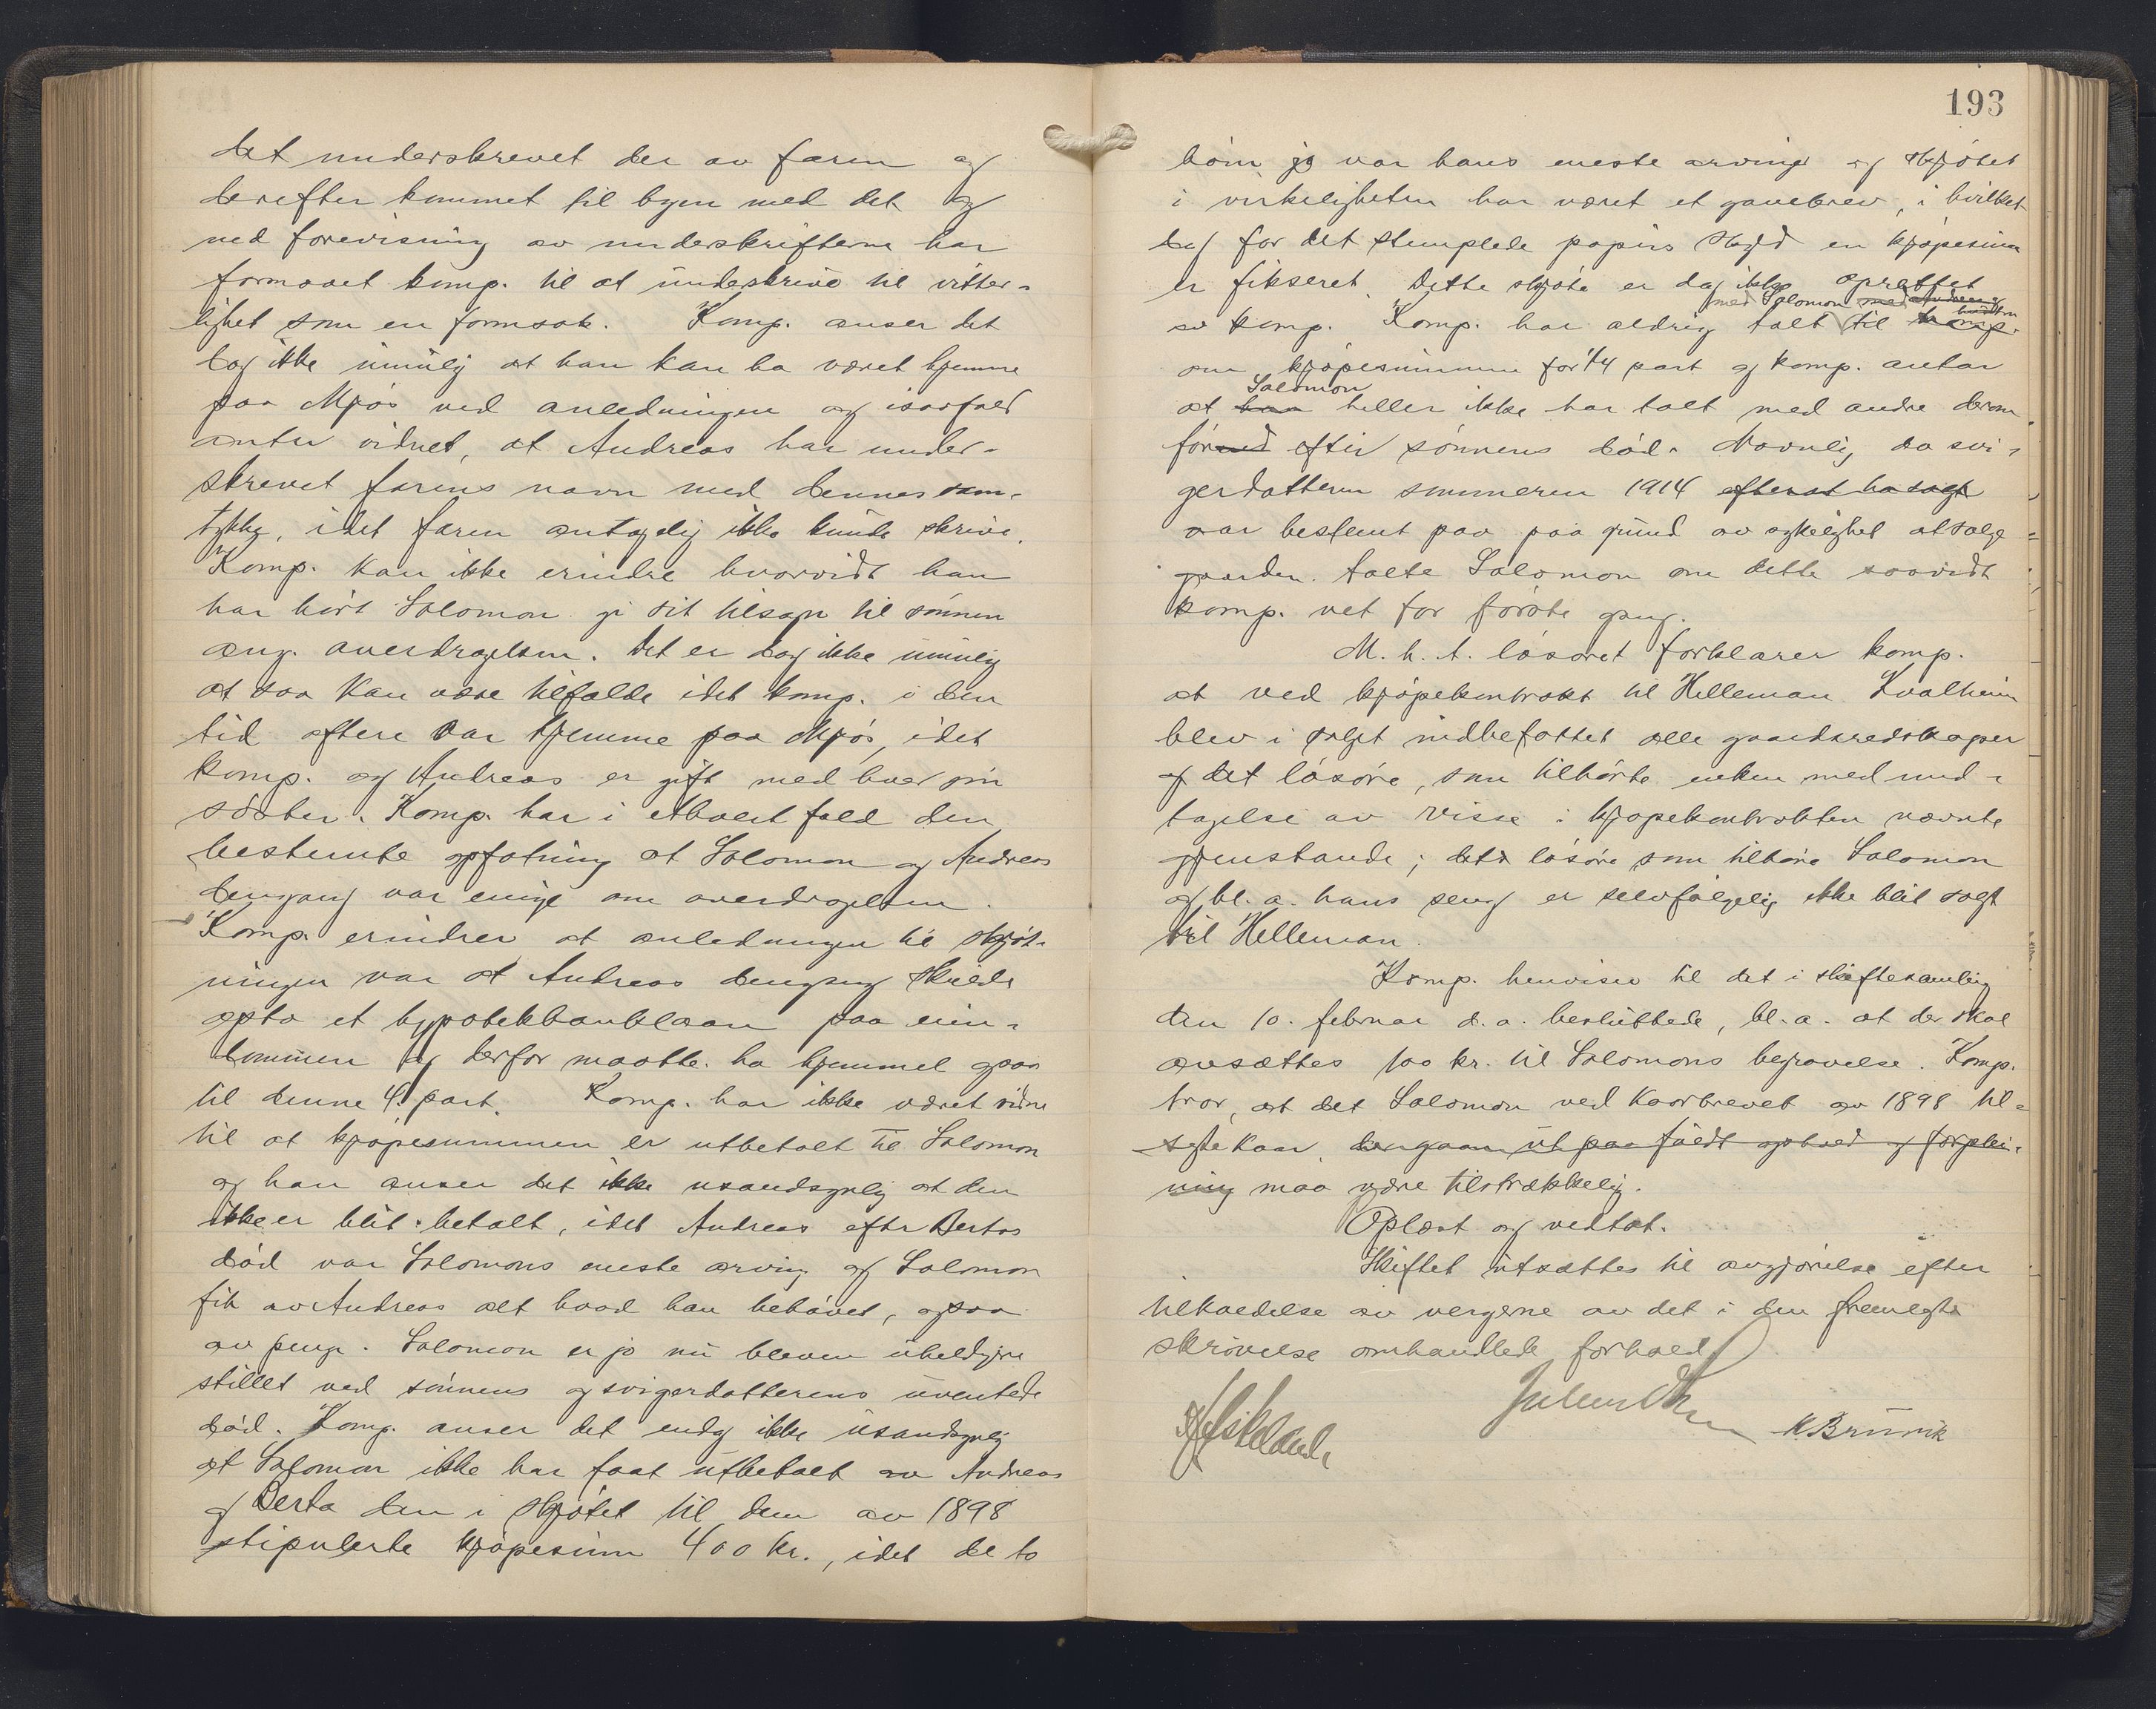 det underskrevet der av faren og
derefter kommet til byen med det og
ved forevisning av underskrifterne har
formaaet komp. til at underskrive til vitter-
lighet som en formsak. Komp. anser det
dog ikke umulig at han kan ha været hjemme
paa Mjøs ved anledningen og isaafald
antar vidnet, at Andreas har under-
skrevet farens navn med dennes sam-
tykke, idet faren antagelig ikke kunde skrive.
Komp. kan ikke erindre hvorvidt han
har hørt Salomon gi sit tilsagn til sønnen
ang. averdragelsen. Det er dog ikke umulig
at saa kan være tilfælde idet komp. i den
tid oftere var hjemme paa Mjøs, idet
komp. og Andreas er gift med hver sin
søster. Komp. har i ethvert fald den
bestemte opfatning at Salomon og Andreas
dengang var enige om averdragelsen.
Komp. erindrer at anledningen til skjøt-
ningen var at Andreas dengang skulde
opta et hypotekbanklaan paa eien-
dommen og derfor maatte ha hjemmel ogsaa
til denne 4. part. Komp. har ikke været vidne
til at kjøpesummen er utbetalt til Salomon
og han anser det ikke usandsynlig at den
ikke er blit betalt, idet Andreas efter Bertas
død var Salomons eneste arving og Salomon
fik av Andreas alt hvad han behøvet, ogsaa
av penge. Salomon er jo nu bleven uheldigere
stillet ved sønnens og svigerdatterens uventede
død. Komp. anser det endog ikke usandsynlig
at Salomon ikke har faat utbetalt av Andreas
og Berta den i skjøtet til dem av 1898
stipulerte kjøpesum 400 kr., idet de to
193
børn jo var hans eneste arvinger og skjøtet
i virkeligheten har været et gavebrev, i hvilket
dog for det stemplede papirs skyld en kjøpesum
er fikseret. Dette skjøte er dog ikke oprettet
med Salomon med Andreas og
av komp. Komp. har aldrig talt til komp.
om kjøpesummen for 1/4 part og komp. antar
Salomon
at han heller ikke har talt med andre derom
før end efter sønnens død. Navnlig da svi-
gerdatteren sommeren 1914 efter at ha sagt
var bestemt paa paa grund av sykelighet at sælge
gaarden. talte Salomon om dette saavidt
komp. vet for første gang.
M. h. t. løsøret forklarer komp.
at ved kjøpekontrakt til Helleman Kvalheim
blev i salget indbefattet alle gaardsredskaper
og det løsøre, som tilhørte enken med und-
tagelse av visse i kjøpekontrakten nævnte
gjenstande; det løsøre som tilhøre Salomon
og bl. a. hans seng er selvfølgelig ikke blit solgt
til Helleman.
Komp. henviser til det i skiftesamling
den 10. februar d. a. besluttede, bl. a. at der skal
avsættes 100 kr. til Salomons begravelse. Komp.
tror, at det Salomon ved kaarbrevet av 1898 til-
sagte kaar, der gaar ut paa fuldt ophold og forplei-
ning maa være tilstrækkelig.
Oplæst og vedtat.
Skiftet utsættes til avgjørelse efter
tilkaldelse av vergerne av det i den fremlagte
skrivelse omhandlede forhold.
K Brunvik